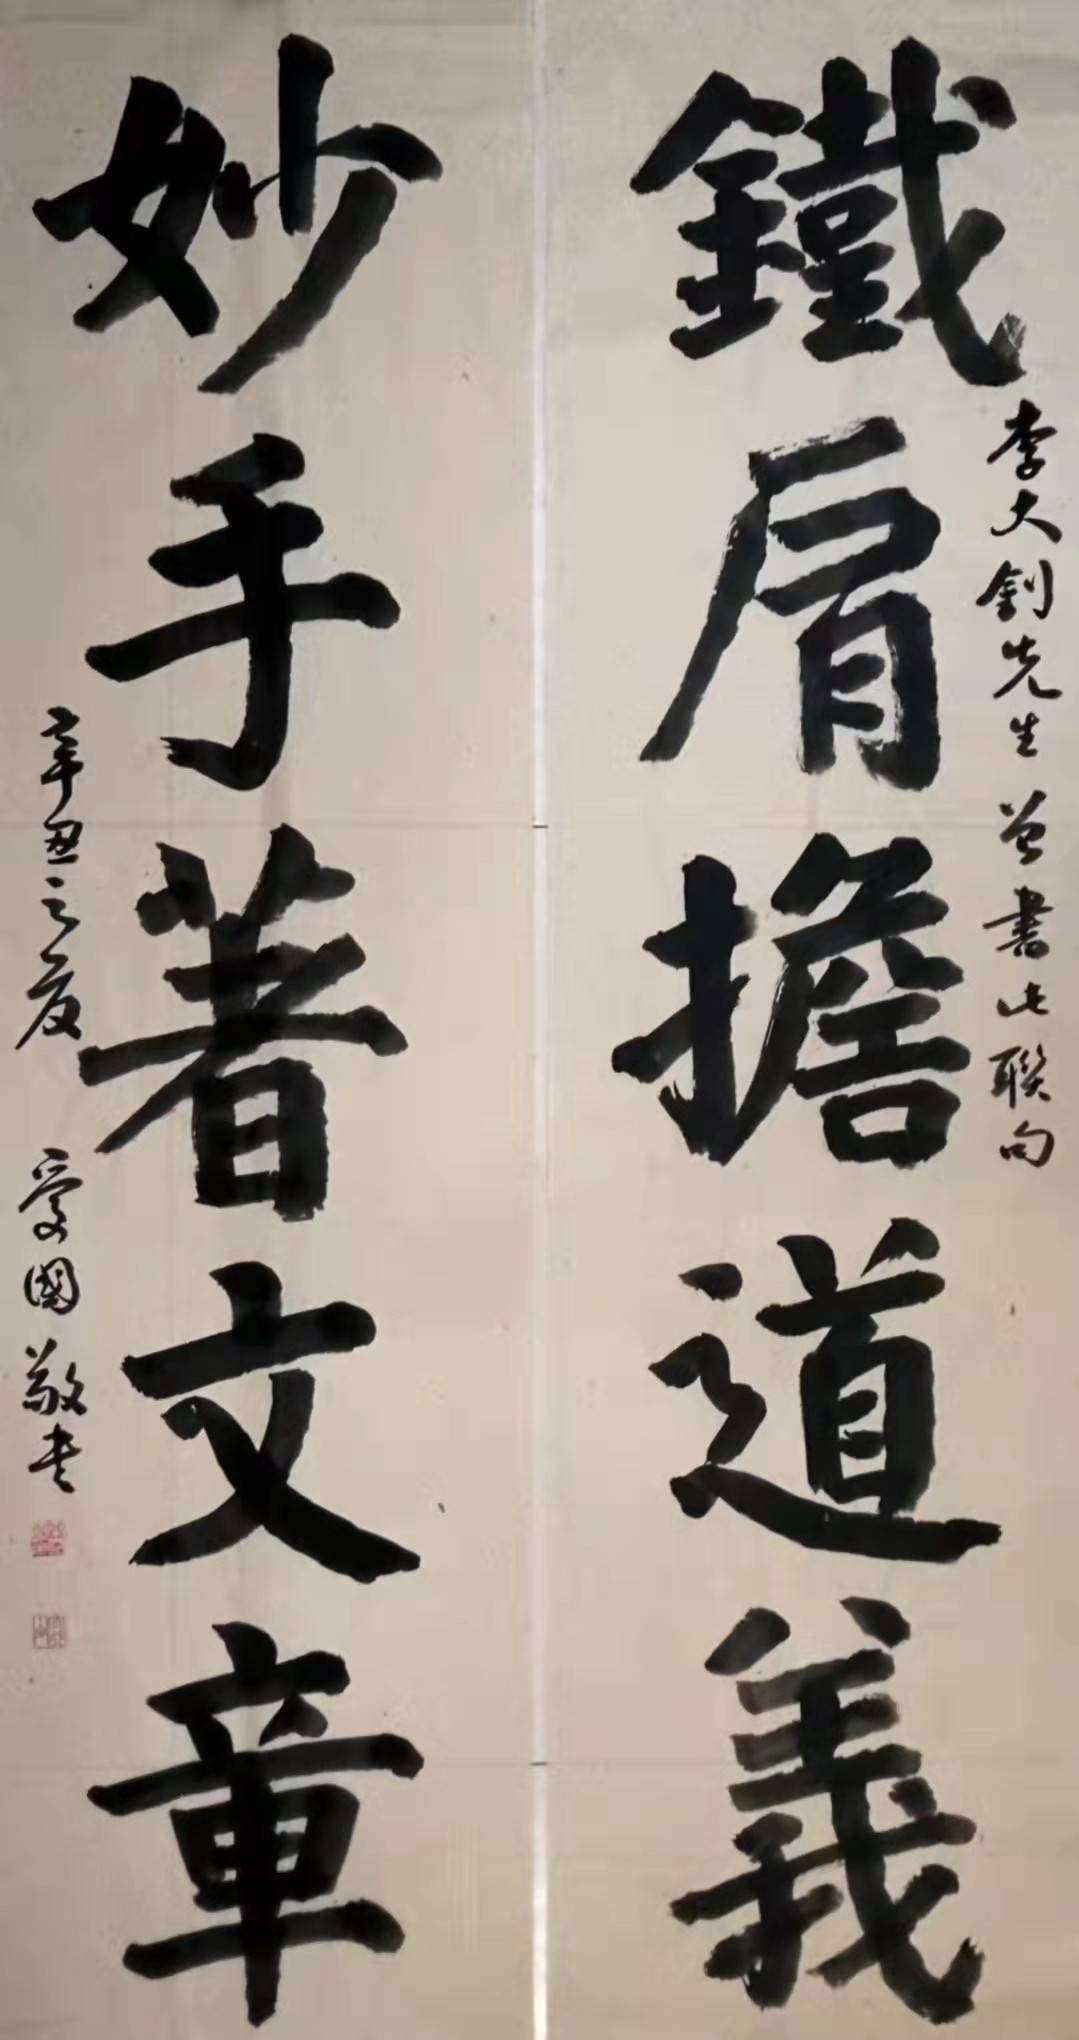 鐵肩擔道義
李大釗先生曾書此聯句
妙手著文章
辛丑之夏 愛國敬书